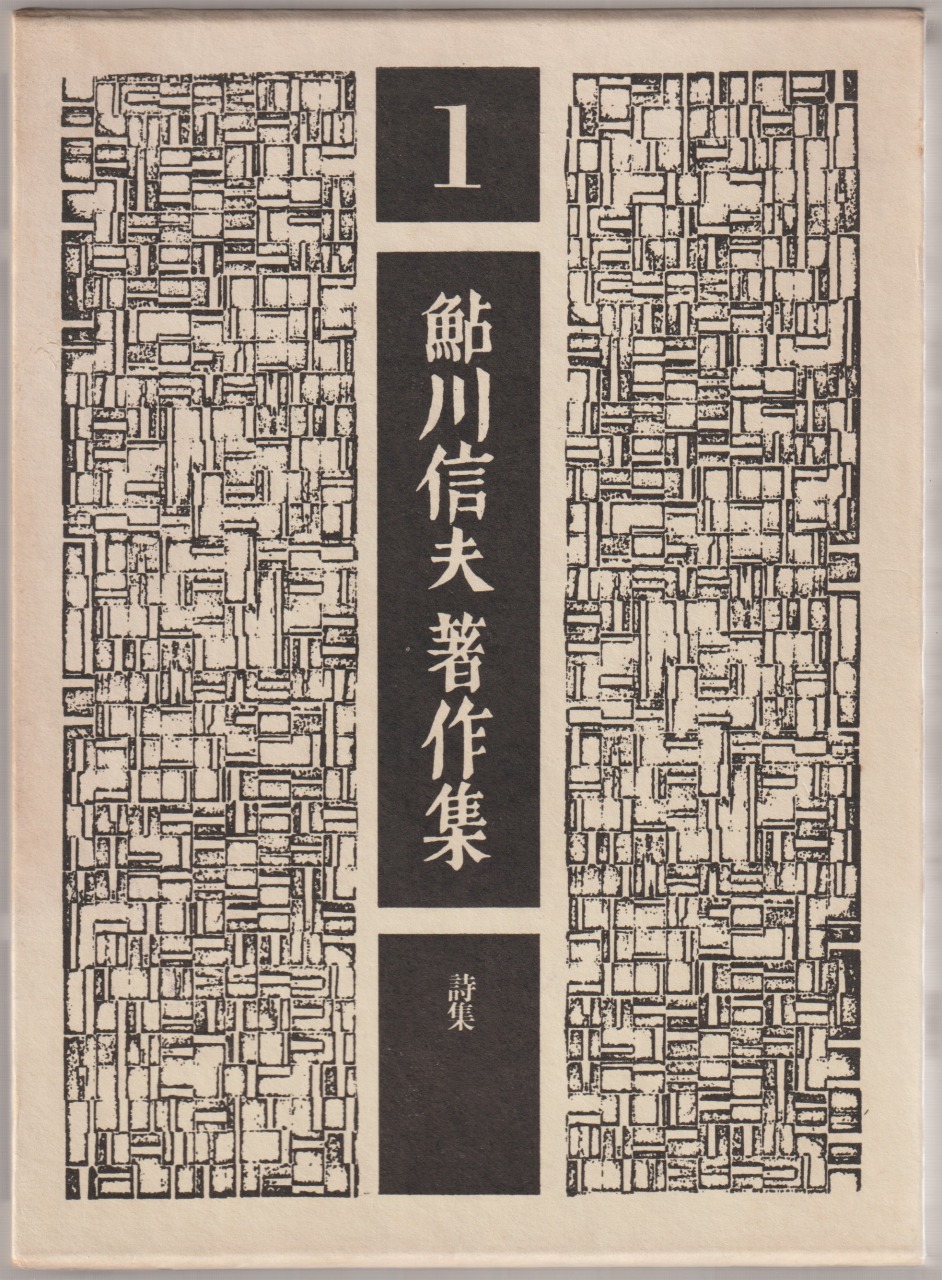 1
鮎川信夫著作集
詩集